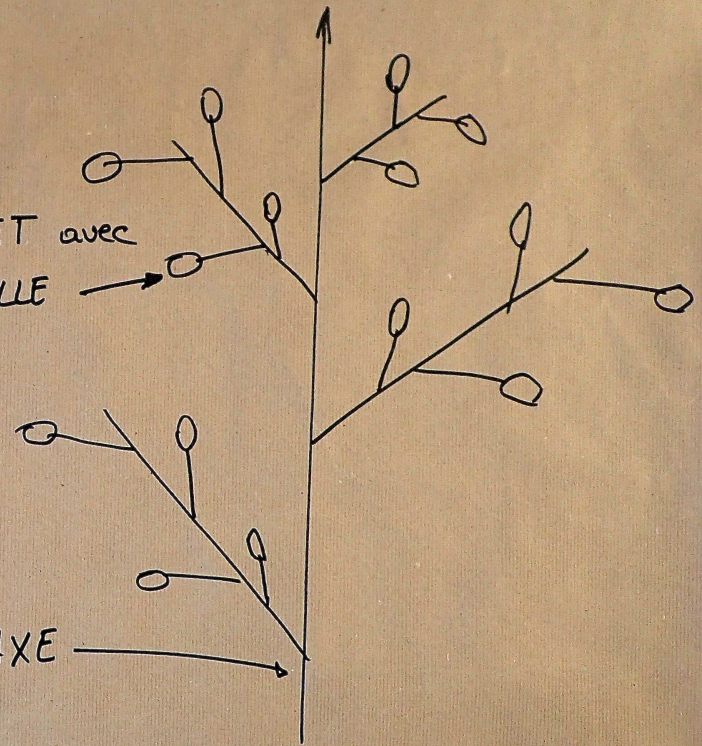 ET avec
LLE
AXE